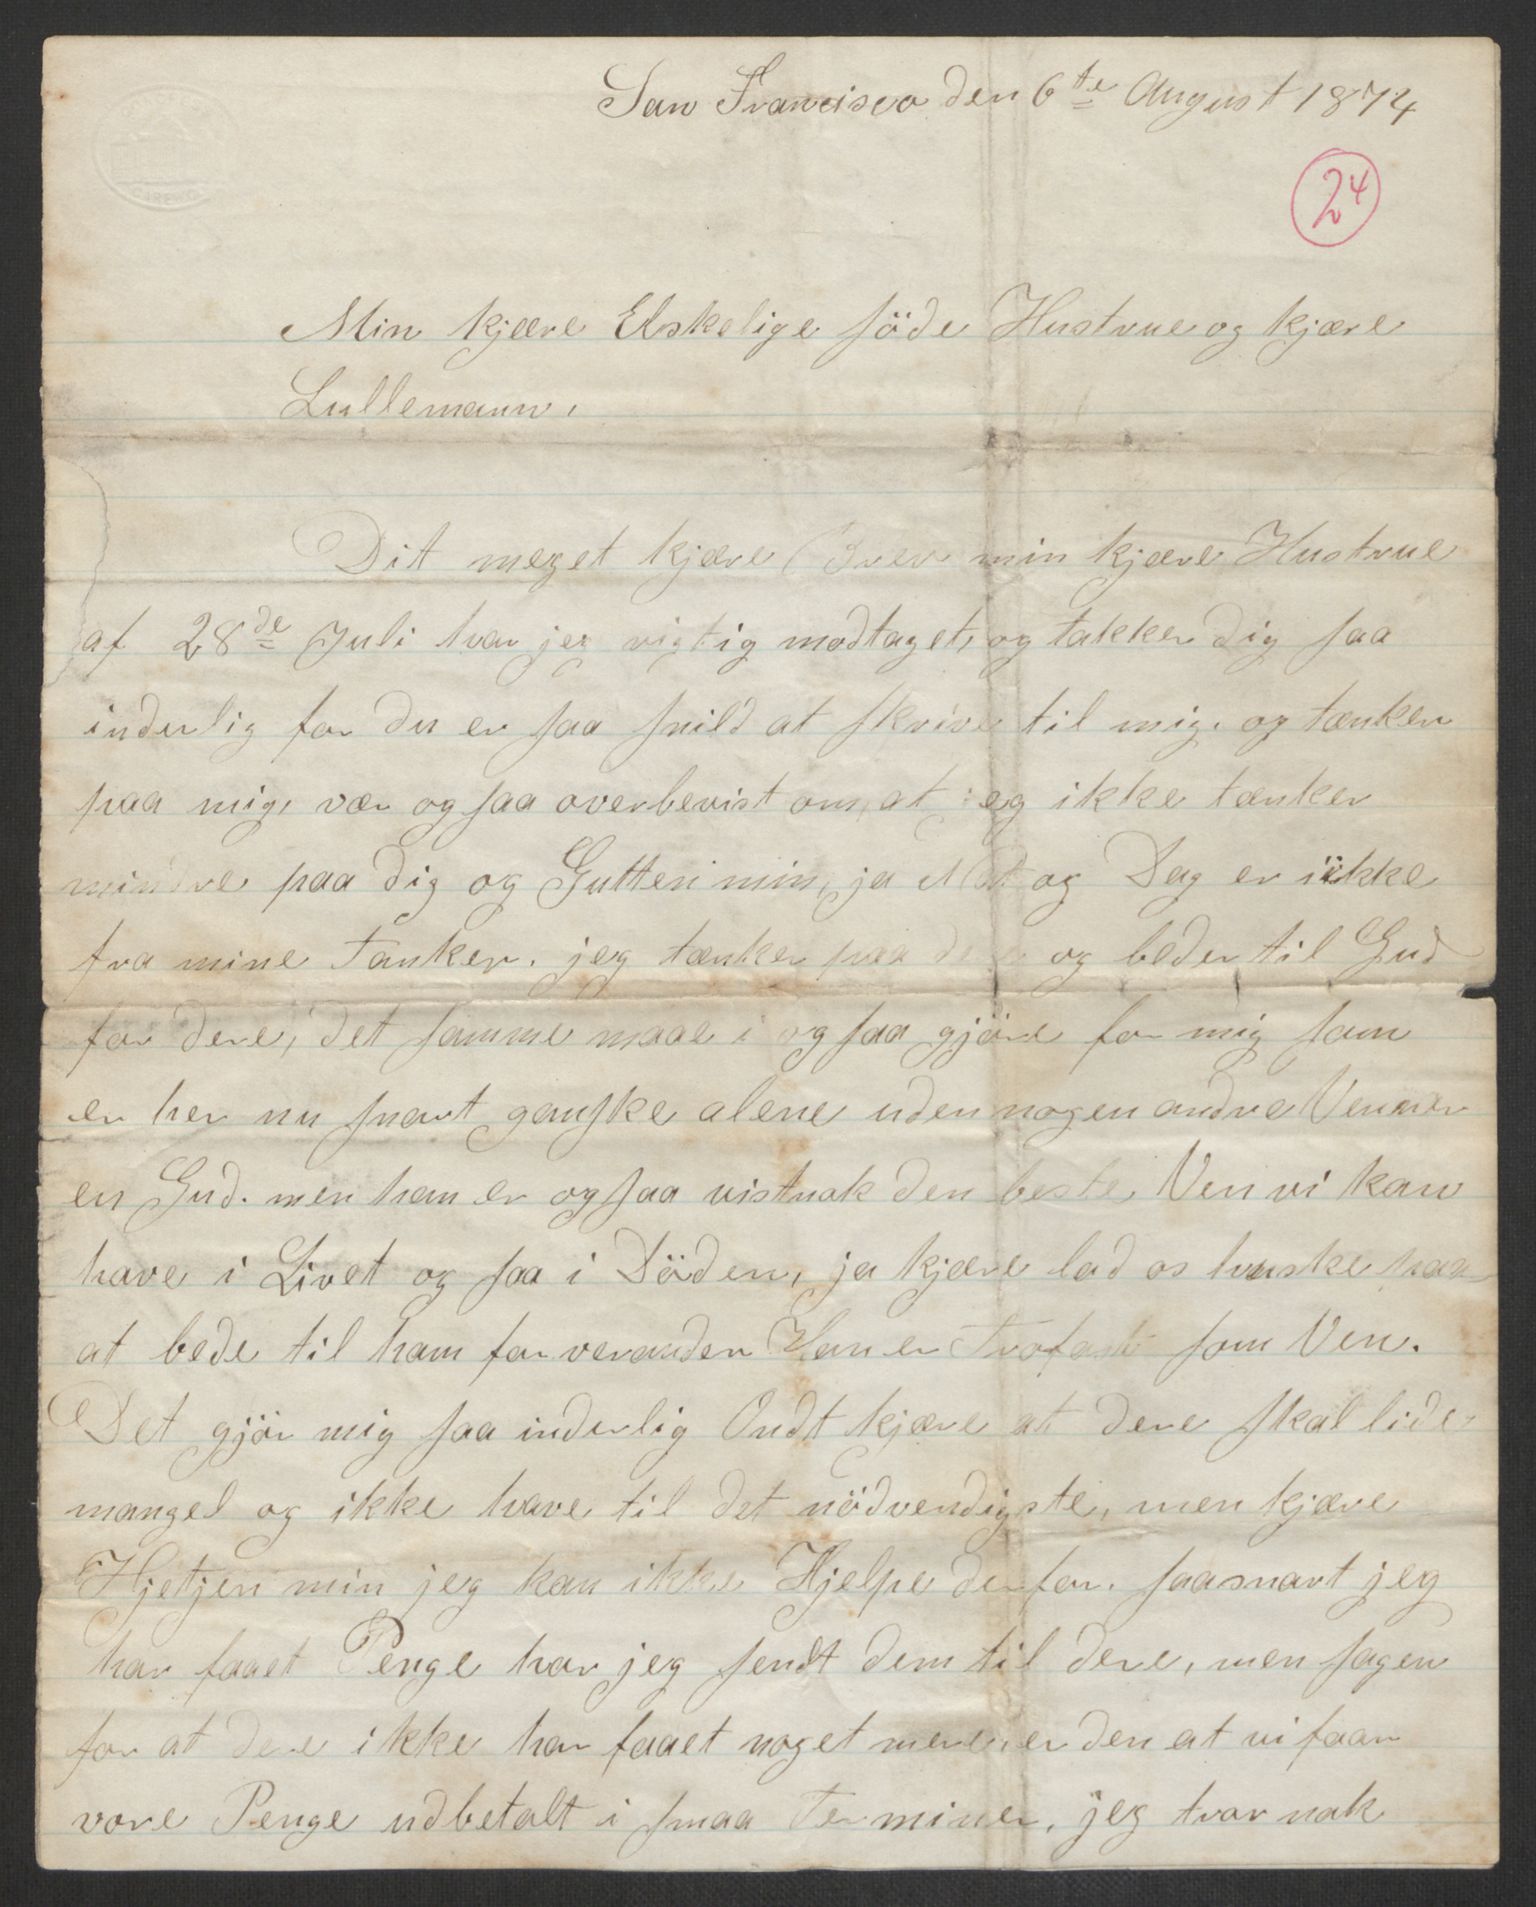 San Francisco den 6te August 1874
24
Min kjære Elskelige söde Hustrue og kjære
Lullemann,
Dit meget kjære Brev min kjære Hustrue
af 28de Juli har jeg rigtig modtaget, og takker dig saa
inderlig for du er saa snild at skrive til mig. og tænker
paa mig, vær ogsaa overbevist om, at jeg ikke tænker
mindre paa dig og Gutten min, ja Nat og Dag er i ikke
fra mine Tanker. jeg tænker paa dere og beder til Gud
for dere, det samme maae i ogsaa gjöre for mig som
er her nu snart ganske alene uden nogen andre Venner
en Gud. men han er ogsaa vistnok den beste Ven vi kan
have i Livet og saa i Döden, ja kjære lad os huske paa
at bede til ham for veranden Han er Trofast som Ven.
Det gjör mig saa inderlig Ondt kjære at dere skal lide
mangel og ikke have til det nödvendigste, men kjære
Hjetjen min jeg kan ikke Hjelpe derfor. saasnart jeg
har faaet Penge har jeg sendt dem til dere, men sagen
for at dere ikke har faaet noget mere, er den at vi faar
vore Penge udbetalt i smaa Terminer, jeg tror nok